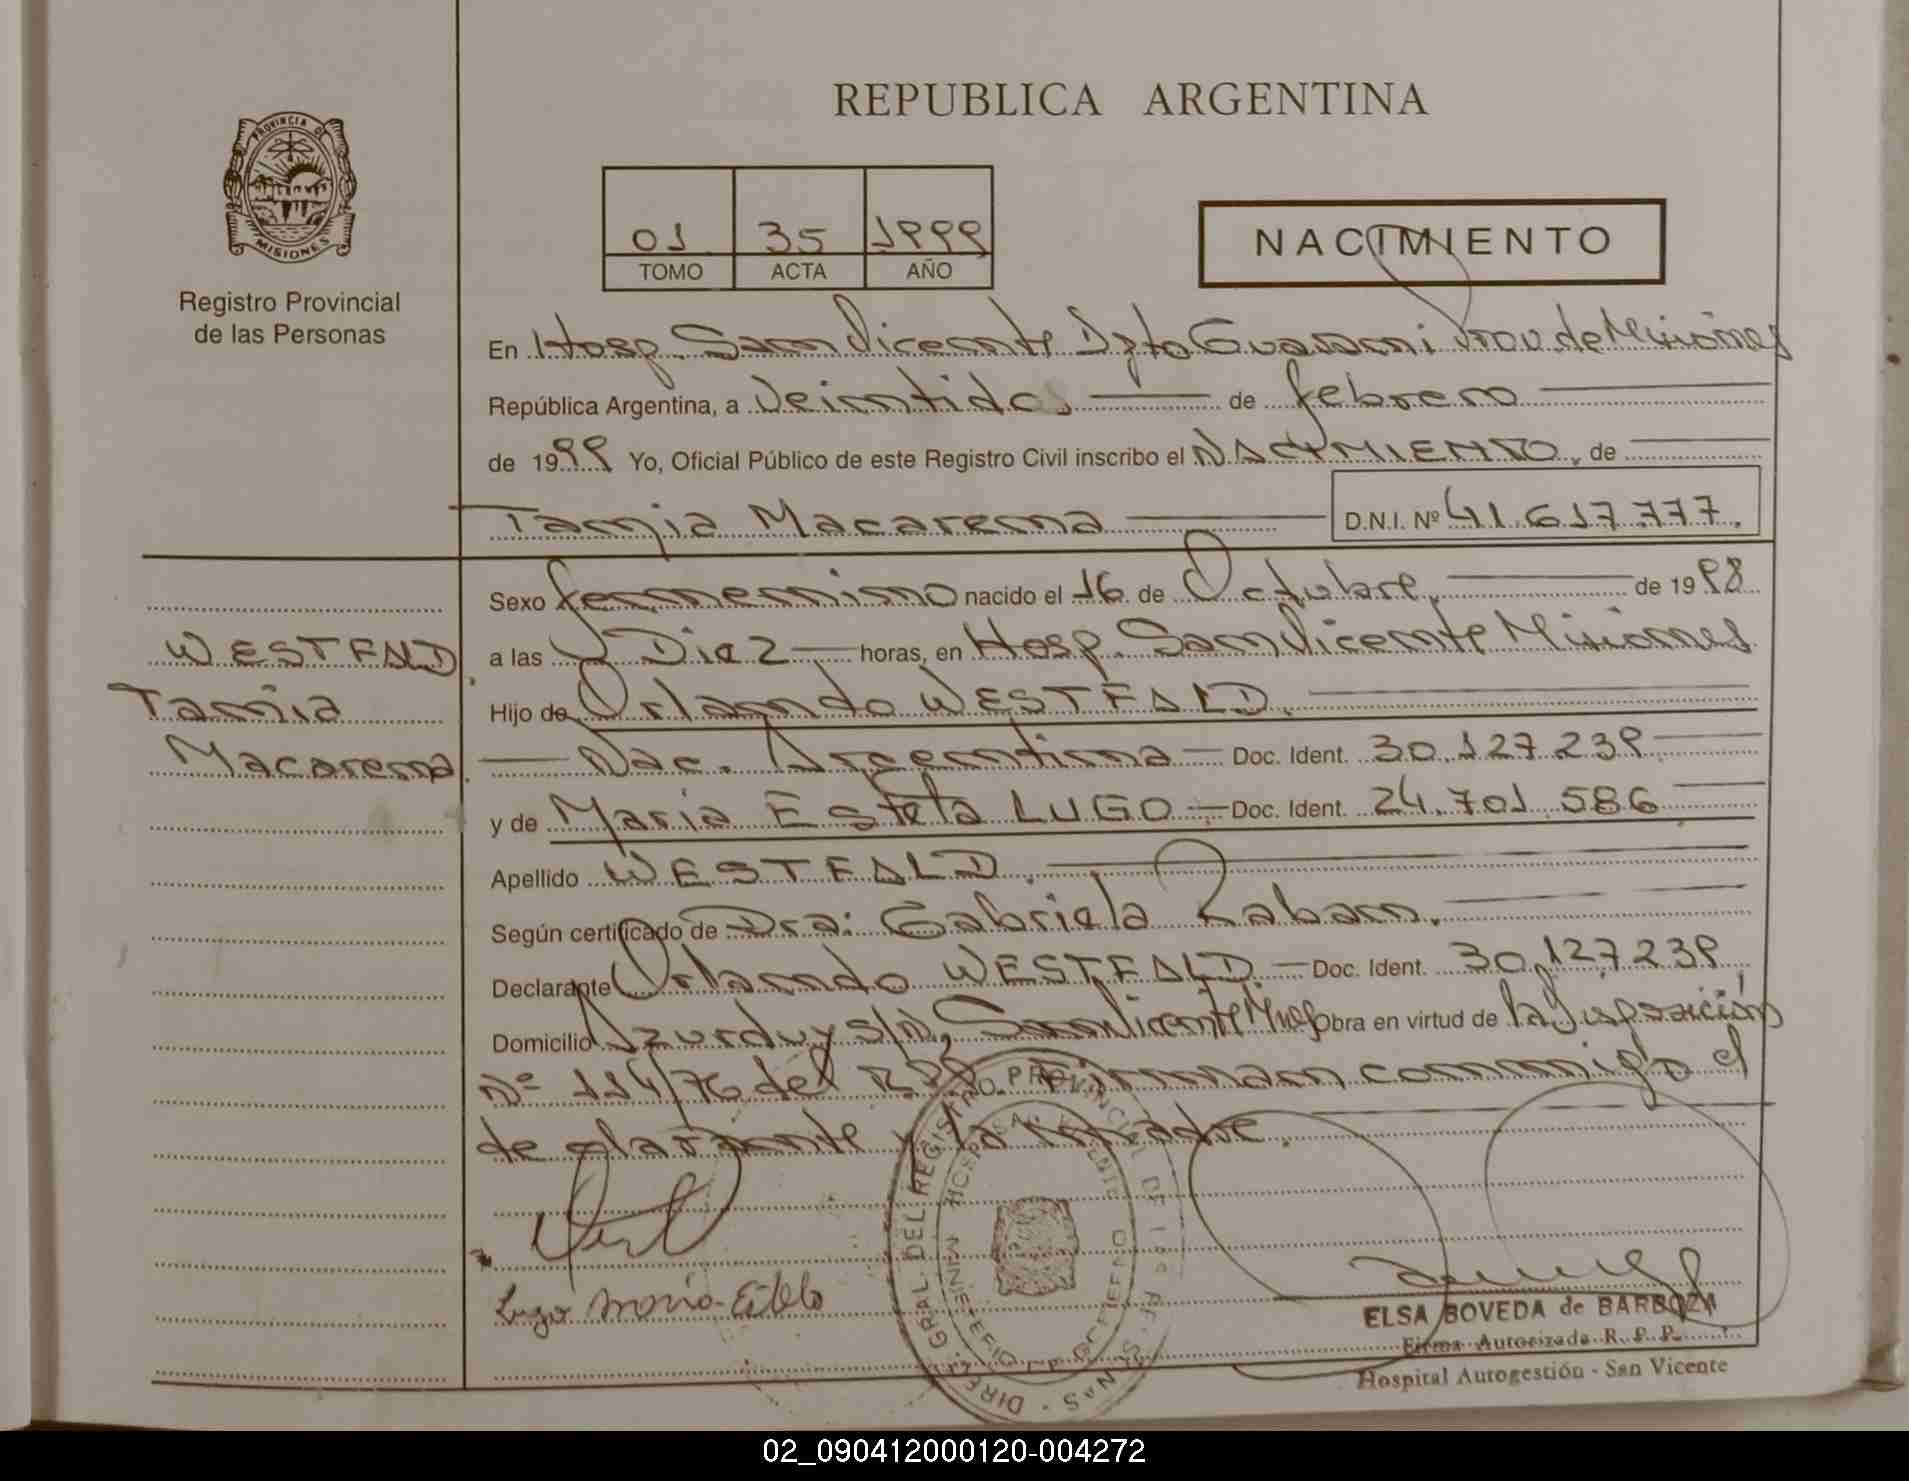 REPUBLICA ARGENTINA
PROVINCIA DE
MISIONES
Registro Provincial
de las Personas
01 35 1999
TOMO ACTA AÑO
NACIMIENTO
En Hosp. San Vicente Dpto Guarani Prov. de Misiones
República Argentina, a Veintidos de febrero
de 1999 Yo, Oficial Público de este Registro Civil inscribo el NACIMIENTO, de
Tania Macarena D.N.I. Nº 41.617.777.
Sexo femenino nacido el 16 de Octubre, de 1998
a las Diez horas, en Hosp. San Vicente Misiones
Hijo de Orlando WESTFALD.
Nac. Argentina Doc. Ident. 30.127.239
y de Maria Estela LUGO Doc. Ident. 24.701.586
Apellido WESTFALD.
Según certificado de Dra: Gabriela Laban.
Declarante Orlando WESTFALD. Doc. Ident. 30.127.239
Domicilio Azurduy s/n, San Vicente Mnes Obra en virtud de la Disposición
Nº 114/76 del RPP Firman conmigo el
declarante y la madre.
WESTFALD,
Tania
Macarena.
Lugo María Estela
DIREC. GRAL DEL REGISTRO PROVINCIAL DE LAS PERSONAS
HOSPITAL SAN VICENTE
ELSA BOVEDA de BARBOZA
Firma Autorizada R. P. P.
Hospital Autogestión - San Vicente
02_090412000120-004272